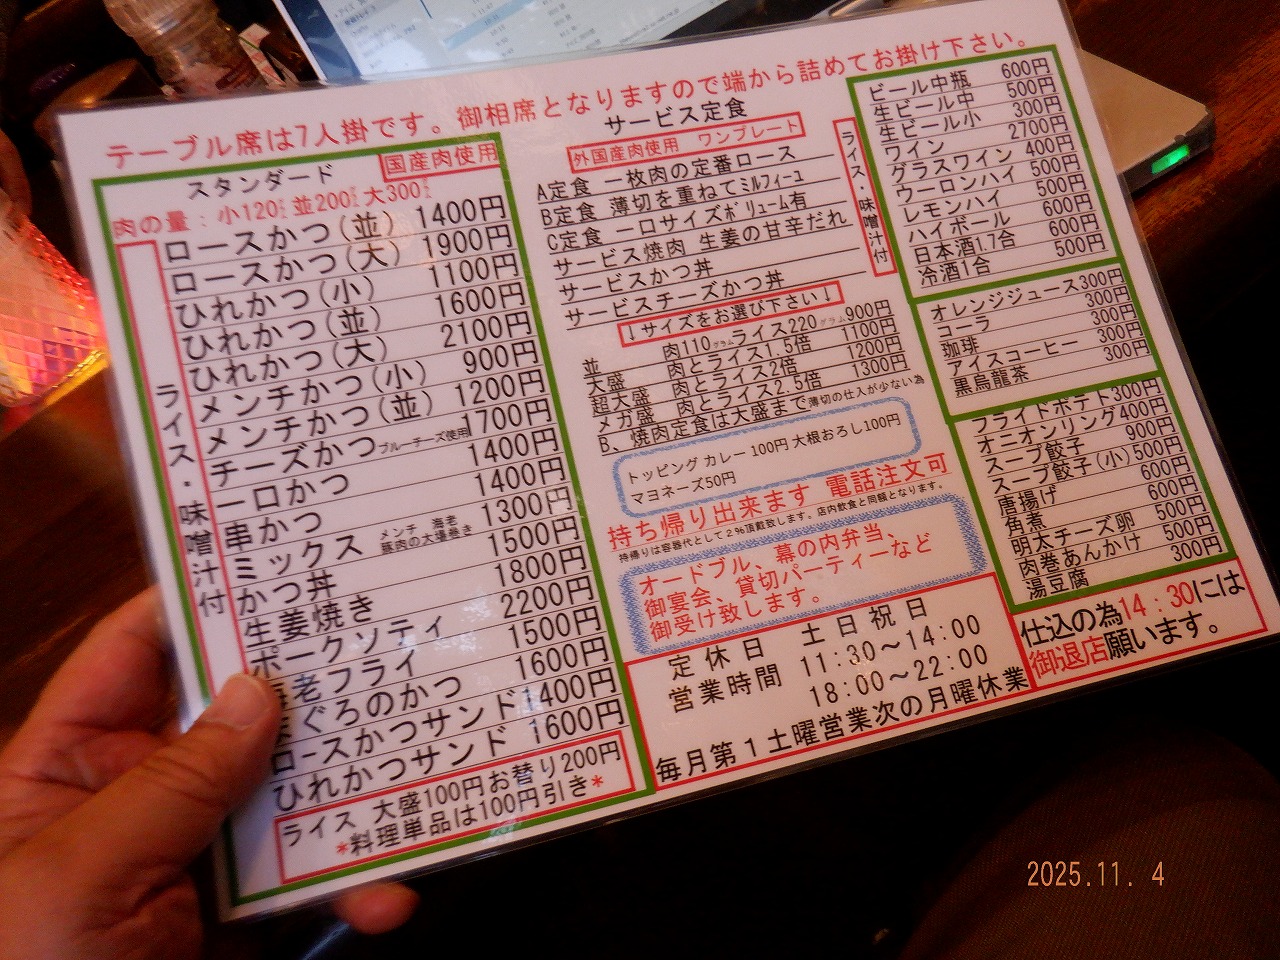 テーブル席は7人掛です。御相席となりますので端から詰めてお掛け下さい。
スタンダード
国産肉使用
肉の量：小120㌘並200㌘大300㌘
ライス・味噌汁付
ロースかつ(並) 1400円
ロースかつ(大) 1900円
ひれかつ(小) 1100円
ひれかつ(並) 1600円
ひれかつ(大) 2100円
メンチかつ(小) 900円
メンチかつ(並) 1200円
チーズかつ ブルーチーズ使用 1700円
一口かつ 1400円
串かつ 1400円
ミックス メンチ 海老 豚肉の大場巻き 1300円
かつ丼 1500円
生姜焼き 1800円
ポークソティ 2200円
海老フライ 1500円
まぐろのかつ 1600円
ロースかつサンド 1400円
ひれかつサンド 1600円
ライス 大盛100円お替り200円
*料理単品は100円引き*
サービス定食
外国産肉使用 ワンプレート
A定食 一枚肉の定番ロース
B定食 薄切を重ねてﾐﾙﾌｨｰﾕ
C定食 一口サイズﾎﾞﾘｭｰﾑ有
サービス焼肉 生姜の甘辛だれ
サービスかつ丼
サービスチーズかつ丼
ライス・味噌汁付
↓サイズをお選び下さい↓
並 肉110グラムライス220グラム 900円
大盛 肉とライス1.5倍 1100円
超大盛 肉とライス2倍 1200円
メガ盛 肉とライス2.5倍 1300円
B、焼肉定食は大盛まで 薄切の仕入が少ない為
トッピング カレー 100円 大根おろし100円
マヨネーズ50円
持ち帰り出来ます 電話注文可
持帰りは容器代として2%頂戴致します。店内飲食と同額となります。
オードブル、幕の内弁当、
御宴会、貸切パーティーなど
御受け致します。
定休日 土日祝日
営業時間 11:30～14:00
18:00～22:00
毎月第1土曜営業次の月曜休業
ビール中瓶 600円
生ビール中 500円
生ビール小 300円
ワイン 2700円
グラスワイン 400円
ウーロンハイ 500円
レモンハイ 500円
ハイボール 600円
日本酒1.7合 600円
冷酒1合 500円
オレンジジュース 300円
コーラ 300円
珈琲 300円
アイスコーヒー 300円
黒烏龍茶 300円
フライドポテト 300円
オニオンリング 400円
スープ餃子 900円
スープ餃子(小) 500円
唐揚げ 600円
角煮 600円
明太チーズ卵 500円
肉巻あんかけ 500円
湯豆腐 300円
仕込の為14：30には
御退店願います。
2025.11. 4